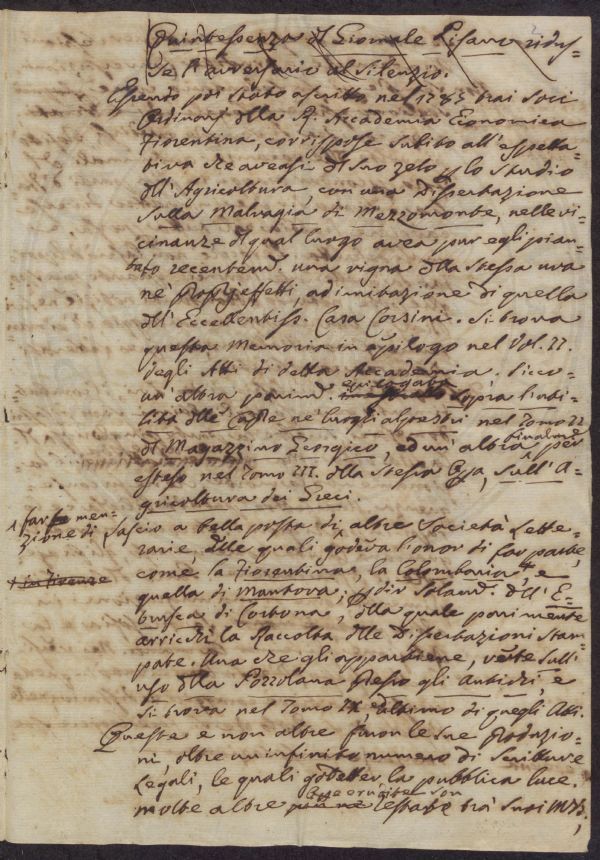 Quintessenza del Giornale Pisano ridus=
se l'avversario al silenzio.
Essendo poi stato ascritto nel 1783 trai Soci
Ordinarj della R. Accademia Economica
Fiorentina, corrispose subito all'espetta=
tiva che aveasi del suo zelo p lo studio
dll'Agricoltura, con una Dissertazione
sulla Malvagia di Mezzomonte, nelle vi=
cinanze di qual luogo avea pur egli pian=
tato recentemte. una vigna dlla stessa uva
ne' proprj effetti, ad imitazione di quella
dll'Eccellentiss. Casa Corsini. Si trova
questa Memoria in epilogo nel Vol. II.
degli Atti di detta Accademia. Sicco=
un'altra parimte. epilogata sopra l'uti=
lità dlle Capre ne' luoghi alpestri nel Tomo II
del Magazzino Georgico, ed un'altra finalmte per
esteso nel Tomo III. dlla stessa Opa, sull'A=
gricoltura dei Greci.
Lascio a bella posta di far menzione di altre Società Lette=
rarie, dlle quali godeva l'onor di far parte,
come la Fiorentina, la Colombaria, e
+ in Firenze
quella di Mantova; p dir solamte. dll'E=
trusca di Cortona, dlla quale parimente
arricchì la Raccolta dlle Dissertazioni stam=
pate. Una che gli appartiene, verte sull'
uso dlla Pozzolana presso gli Antichi, e
si trova nel Tomo IX ed ultimo di quegli Atti.
Queste e non altre furon le sue Produzio=
ni, oltre un infinito numero di Scritture
Legali, le quali godetter la pubblica luce.
molte altre restate trà suoi MSS.,